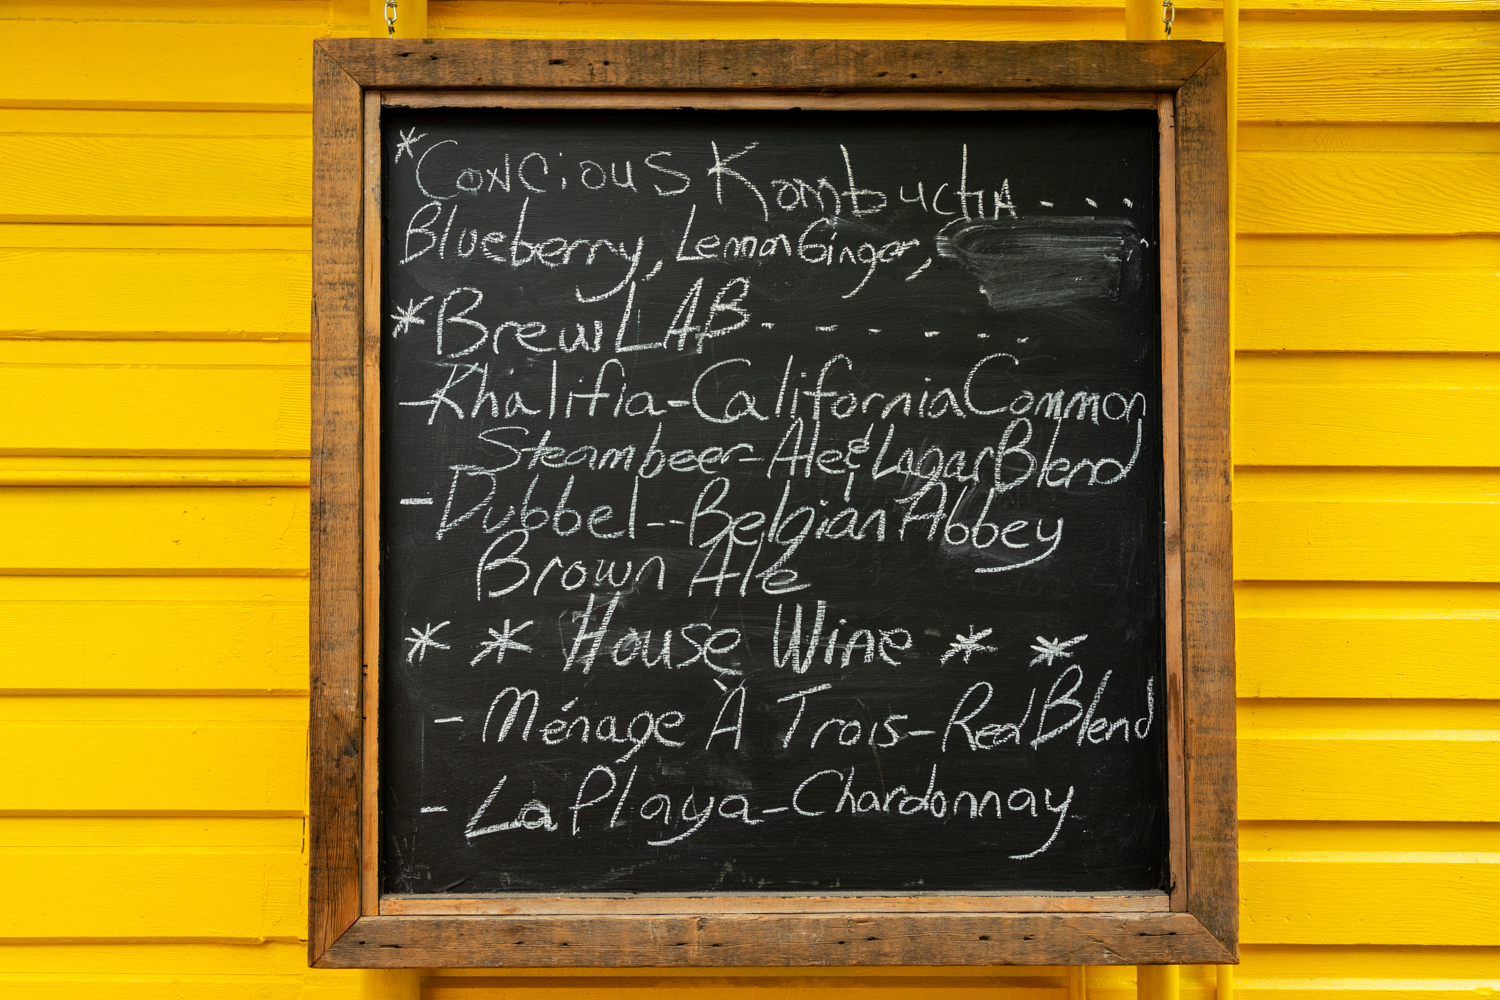 *Concious Kombucha - - - -
Blueberry, Lemon Ginger,
*Brew LAB - - - - - -
-Khalifia-California Common
Steambeer-Ale & Lagar Blend
-Dubbel--Belgian Abbey
Brown Ale
* * House Wine * *
- Ménage À Trois-Red Blend
- La Playa-Chardonnay